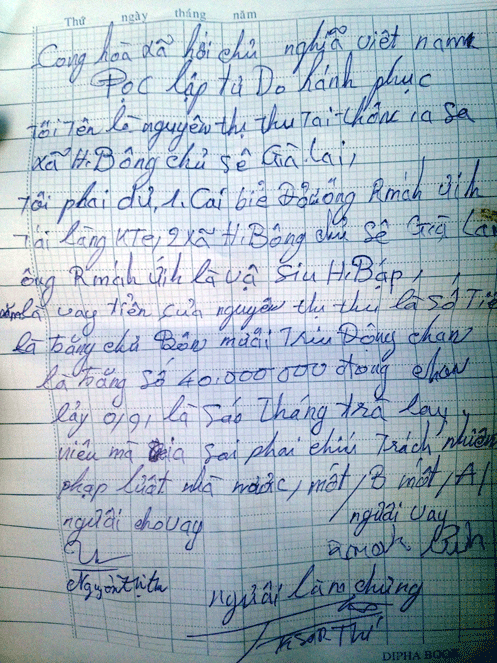 Thứ ngày tháng năm
Cong hoà xã hỏi chủ nghĩa việt nam
Đọc lập tử Do hánh phục
tôi Tên là nguyên thị thu Tai thôn ia sa
xã H.Bông chủ sê Gia Lai,
Tôi phai dử, 1. Cai biể Rmah ưih
Tải làng KTe, 2 xã H.Bông chủ sê Gia Lai
ông Rmah ưih là vậ Siu H.Báp,
năm là vay tiền của nguyên thị thu là số Tiề
là bằng chủ Bôn mưài Triu Đông chan
là bằng số 40.000 000 đong chan
lảy 0,9, là sáo Tháng trả lay,
niêu mà sai phai chiu Trách nhiêm
phap luật nhà nước, một, B một, A,
ngưải cho vay người vay
Nguyễn thị thu
người làm chứng
KSOR Thí
DIPHA BOOK